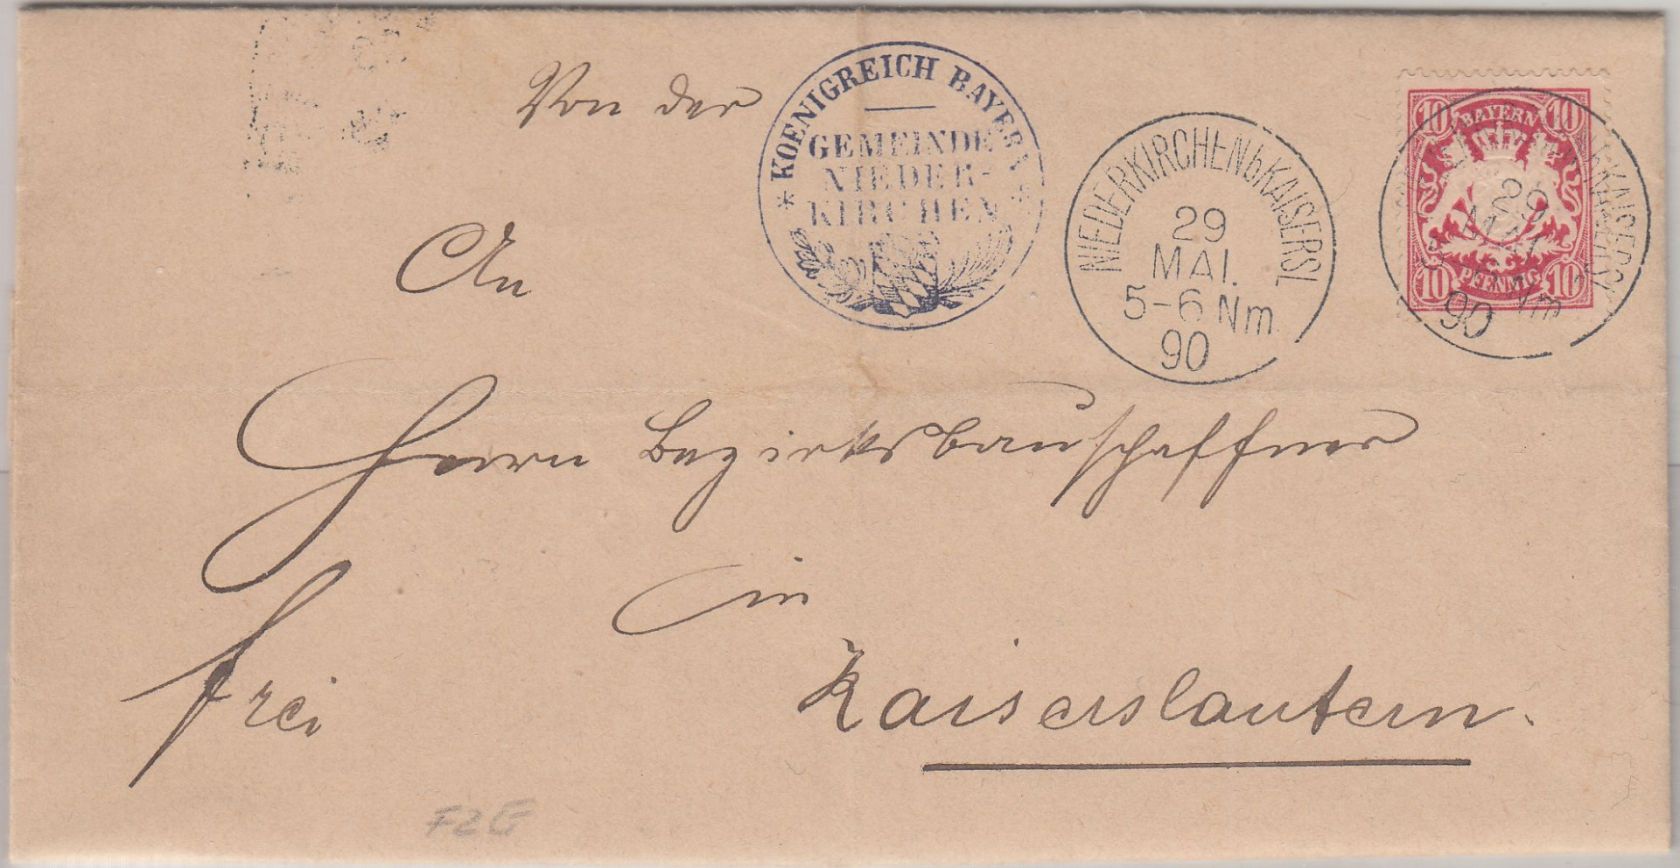 Von der
* KOENIGREICH BAYERN *
GEMEINDE
NIEDER-
KIRCHEN
NIEDERKIRCHEN b KAISERSL
29
MAI.
5-6 Nm
90
10 BAYERN 10
10 PFENNIG 10
KAISERSL
29
MAI
Nm
90
An
Herrn Bezirksbauschaffner
in
frei
Kaiserslautern.
FZG